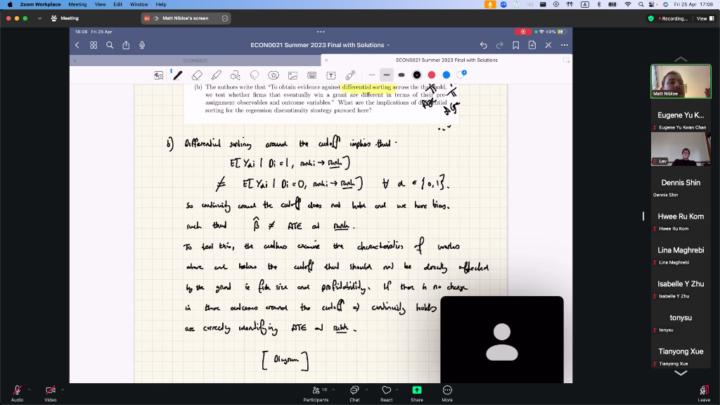 Zoom Workplace Meeting View Edit Window Help
Fri 25 Apr 17:08
Meeting
Matt Niblee's screen
Recording...
View
18:08 Fri 25 Apr
ECON0021 Summer 2023 Final with Solutions
ECON0021
ECON0021 Summer 2023 Final with Solutions
(b) The authors write that "To obtain evidence against differential sorting across the threshold,
we test whether firms that eventually win a grant are different in terms of their pre-
assignment observables and outcome variables." What are the implications of differential
sorting for the regression discontinuity strategy pursued here?
b) Differential sorting around the cutoff implies that
E[Ydi | Di = 1, ranki → rank]
≠ E[Ydi | Di = 0, ranki → rank] ∀ d ∈ {0,1}.
So continuity around the cutoff does not hold and we have bias,
such that β̂ ≠ ATE at rank.
To test this, the authors examine the characteristics of
above and below the cutoff that should not be directly affected
by the grant ie firm size and profitability. If there is no change
in these outcomes around the cutoff ⇒ continuity holds
are correctly identifying ATE at rank.
[Diagram]
Matt Niblee
Eugene Yu K...
Eugene Yu Kwan Chan
Lev
Dennis Shin
Dennis Shin
Hwee Ru Kom
Hwee Ru Kom
Lina Maghrebi
Lina Maghrebi
Isabelle Y Zhu
Isabelle Y Zhu
tonysu
tonysu
Tianyong Xue
Tianyong Xue
Audio
Video
Participants
Chat
React
Share
More
Leave